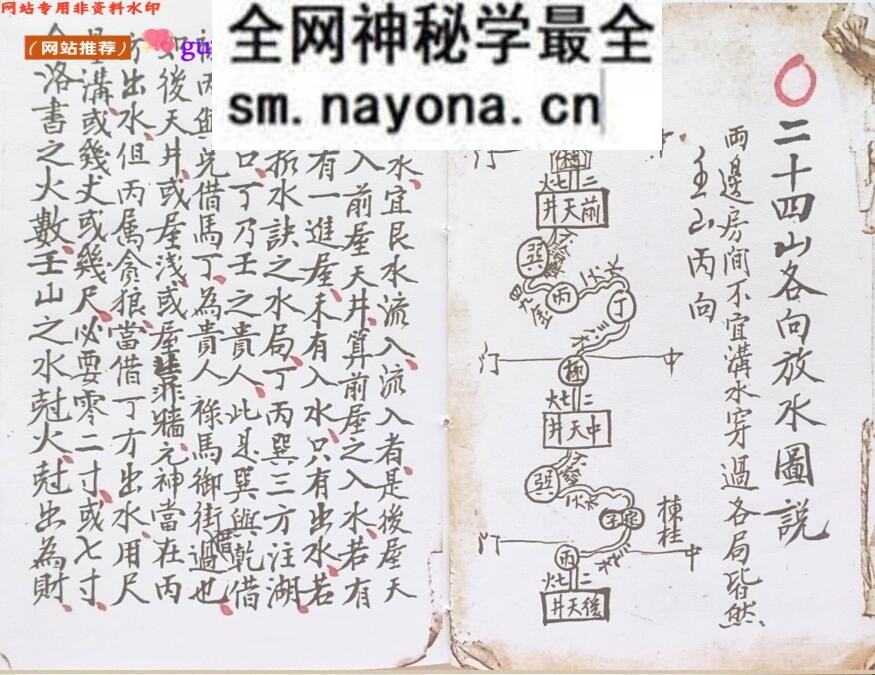 网站专用非资料水印
(网站推荐)
gu
全网神秘学最全
sm.nayona.cn
二十四山各向放水圖説
兩邊房间不宜溝水穿過各局皆然
壬山丙向
门
火七 二
前天井
巽
丙
丁
门
中
火七 二
中天井
巽
棟桂
门
中
丙
火七 二
後天井
水、宜艮水流入、流入者是後屋天
入前屋天井、算前屋之入水、若有
有一進屋、未有入水、只有出水、若
水訣之水局、丁丙巽三方注湖、
口、丁乃壬之貴人、此是巽與乾借
丙與兇借馬丁、為貴人祿馬御街過也
如後天井、或屋浅、或屋
牆、元神當在丙
方出水、但丙属貪狼、當借丁方出水、用尺
是溝、或幾丈或幾尺、必要零二寸、或七寸、
合洛書之火數、壬山之水尅火、尅出為財、